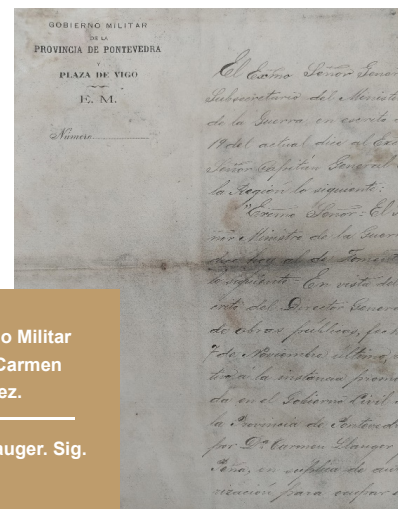 GOBIERNO MILITAR
DE LA
PROVINCIA DE PONTEVEDRA
Y
PLAZA DE VIGO
E. M.
Número
El Exmo Señor Gener
Subsecretario del Minist
de la Guerra en escrito
19 del actual dice al Ex
Señor Capitán General
la Region lo siguiente:
"Exmo Señor: El
Ministro de la Guer
dice hoy al de Foment
lo siguiente = En vista del
del Director Genera
de obras publicas, fe
7 de Noviembre ultimo,
á la instancia prom
da en el Gobierno Civil
la Provincia de Ponteved
por Dª Carmen Llauger
Peña, en suplica de au
rización para ocupar
o Militar
Carmen
ez.
auger. Sig.